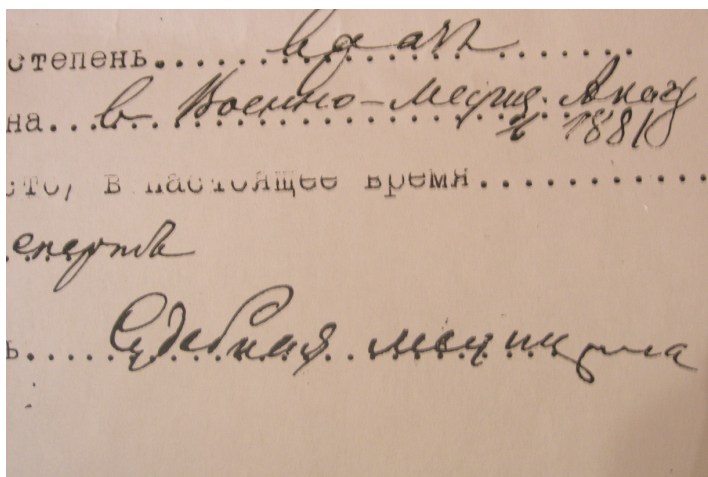 степень.... врач ........
на... в Военно-Медиц. Акад
в 1881
сто, в настоящее время............
эксперть
ь..... Судебная медицина